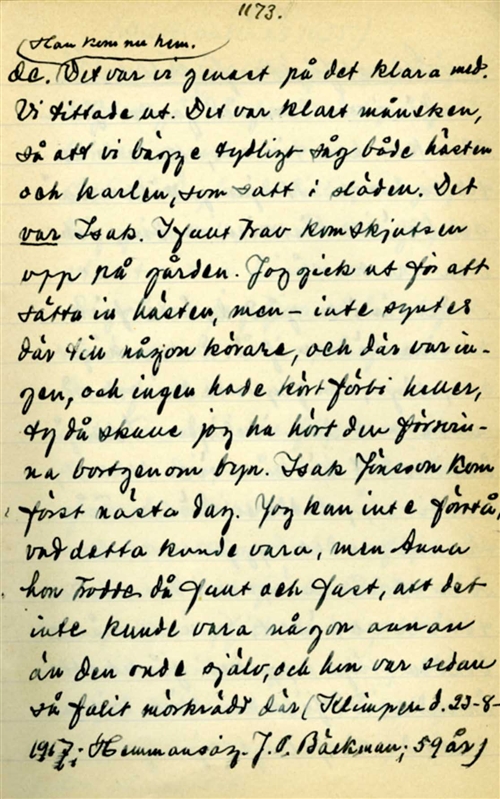 1173.
(Han kom nu hem.
de. Det var vi genast på det klara med.
Vi tittade ut. Det var klart månsken,
så att vi bägge tydligt såg både hästen
och karlen, som satt i släden. Det
var Isak. I fullt trav kom skjutsen
upp på gården. Jag gick ut för att
sätta in hästen, men – inte syntes
där till någon körare, och där var in-
gen, och ingen hade kört förbi heller,
ty då skulle jag ha hört den försvin-
na bortgenom byn. Isak Jönsson kom
först nästa dag. Jag kan inte förstå,
vad detta kunde vara, men Anna
hon trodde då fullt och fast, att det
inte kunde vara någon annan
än den onde själv, och hon var sedan
så falit mörkrädd där (Klimpen d. 23-8-
1917; Hemmansäg. J. P. Bäckman; 59 år)